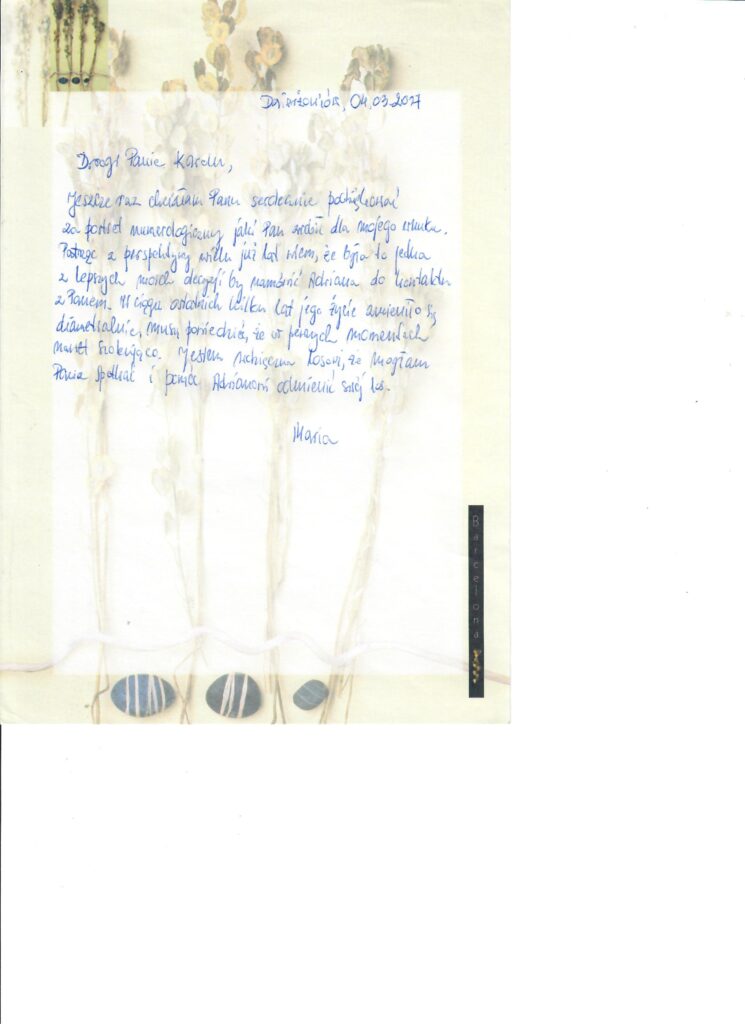 Dzierżoniów, 04.03.2017
Drogi Panie
Jeszcze raz chciałam Panu serdecznie podziękować
za portret numerologiczny jaki Pan zrobił dla mojego wnuka.
Patrząc z perspektywy wielu już lat wiem, że była to jedna
z lepszych moich decyzji by namówić Adriana do kontaktu
z Panem. W ciągu ostatnich kilku lat jego życie zmieniło się
diametralnie, muszę powiedzieć, że w pewnych momentach
nawet szokująco. Jestem wdzięczna Losowi, że mogłam
Pana spotkać i pomóc Adrianowi odmienić swój los.
Maria
Barcelona